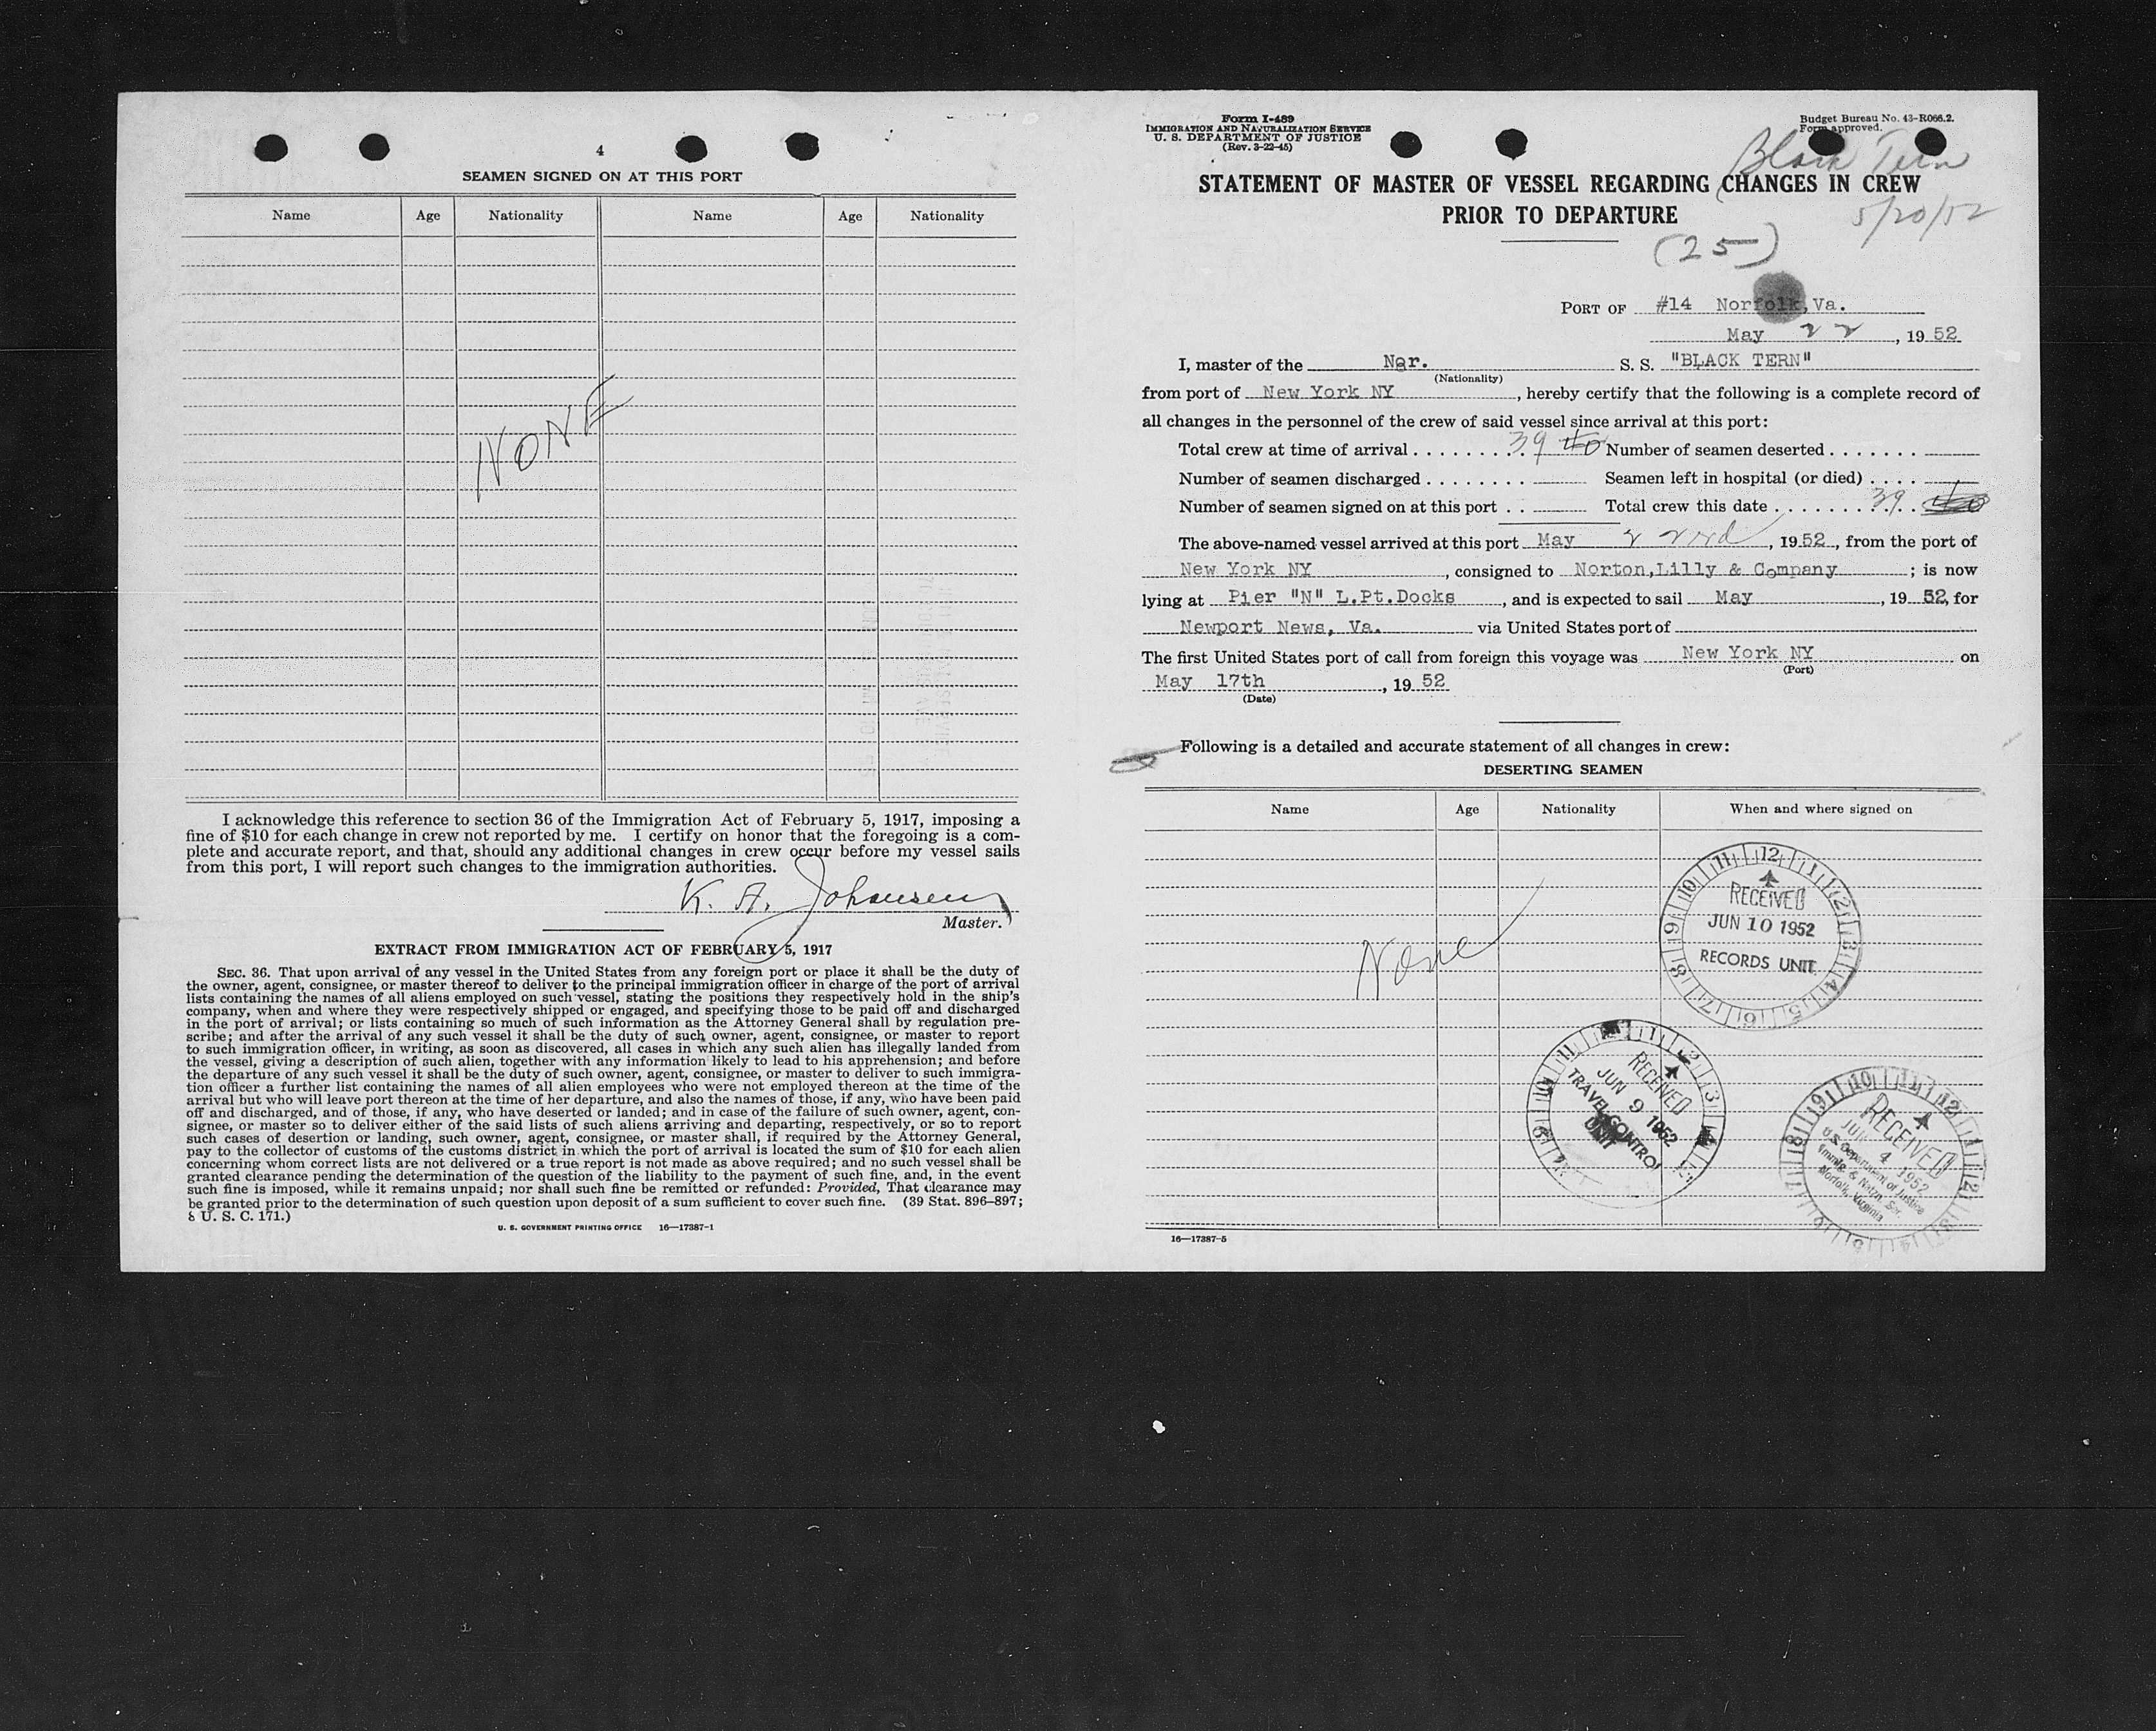 4
SEAMEN SIGNED ON AT THIS PORT
Name Age Nationality Name Age Nationality
NONE
I acknowledge this reference to section 36 of the Immigration Act of February 5, 1917, imposing a
fine of $10 for each change in crew not reported by me. I certify on honor that the foregoing is a com-
plete and accurate report, and that, should any additional changes in crew occur before my vessel sails
from this port, I will report such changes to the immigration authorities.
K. A. Johansen
Master.
EXTRACT FROM IMMIGRATION ACT OF FEBRUARY 5, 1917
SEC. 36. That upon arrival of any vessel in the United States from any foreign port or place it shall be the duty of
the owner, agent, consignee, or master thereof to deliver to the principal immigration officer in charge of the port of arrival
lists containing the names of all aliens employed on such vessel, stating the positions they respectively hold in the ship's
company, when and where they were respectively shipped or engaged, and specifying those to be paid off and discharged
in the port of arrival; or lists containing so much of such information as the Attorney General shall by regulation pre-
scribe; and after the arrival of any such vessel it shall be the duty of such owner, agent, consignee, or master to report
to such immigration officer, in writing, as soon as discovered, all cases in which any such alien has illegally landed from
the vessel, giving a description of such alien, together with any information likely to lead to his apprehension; and before
the departure of any such vessel it shall be the duty of such owner, agent, consignee, or master to deliver to such immigra-
tion officer a further list containing the names of all alien employees who were not employed thereon at the time of the
arrival but who will leave port thereon at the time of her departure, and also the names of those, if any, who have been paid
off and discharged, and of those, if any, who have deserted or landed; and in case of the failure of such owner, agent, con-
signee, or master so to deliver either of the said lists of such aliens arriving and departing, respectively, or so to report
such cases of desertion or landing, such owner, agent, consignee, or master shall, if required by the Attorney General,
pay to the collector of customs of the customs district in which the port of arrival is located the sum of $10 for each alien
concerning whom correct lists are not delivered or a true report is not made as above required; and no such vessel shall be
granted clearance pending the determination of the question of the liability to the payment of such fine, and, in the event
such fine is imposed, while it remains unpaid; nor shall such fine be remitted or refunded: Provided, That clearance may
be granted prior to the determination of such question upon deposit of a sum sufficient to cover such fine. (39 Stat. 896-897;
8 U. S. C. 171.)
U. S. GOVERNMENT PRINTING OFFICE 16—17387-1
Form I-489
IMMIGRATION AND NATURALIZATION SERVICE
U. S. DEPARTMENT OF JUSTICE
(Rev. 3-22-45)
Budget Bureau No. 43-R066.2.
Form approved.
Black Tern
5/20/52
STATEMENT OF MASTER OF VESSEL REGARDING CHANGES IN CREW
PRIOR TO DEPARTURE
(25)
PORT OF #14 Norfolk, Va.
May 22, 1952
I, master of the Nor. S. S. "BLACK TERN"
(Nationality)
from port of New York NY, hereby certify that the following is a complete record of
all changes in the personnel of the crew of said vessel since arrival at this port:
Total crew at time of arrival 39 40 Number of seamen deserted
Number of seamen discharged Seamen left in hospital (or died)
Number of seamen signed on at this port Total crew this date 39 40
The above-named vessel arrived at this port May 22nd, 1952, from the port of
New York NY, consigned to Norton,Lilly & Company; is now
lying at Pier "N" L.Pt.Docks, and is expected to sail May, 19 52, for
Newport News, Va. via United States port of
The first United States port of call from foreign this voyage was New York NY on
(Port)
May 17th, 19 52
(Date)
Following is a detailed and accurate statement of all changes in crew:
DESERTING SEAMEN
Name Age Nationality When and where signed on
None
RECEIVED
JUN 10 1952
RECORDS UNIT
RECEIVED
JUN 9 1952
TRAVEL CONTROL
UNIT
RECEIVED
JUN 4 1952
U.S. Department of Justice
Immig. & Natzn. Ser.
Norfolk, Virginia
16—17387-5